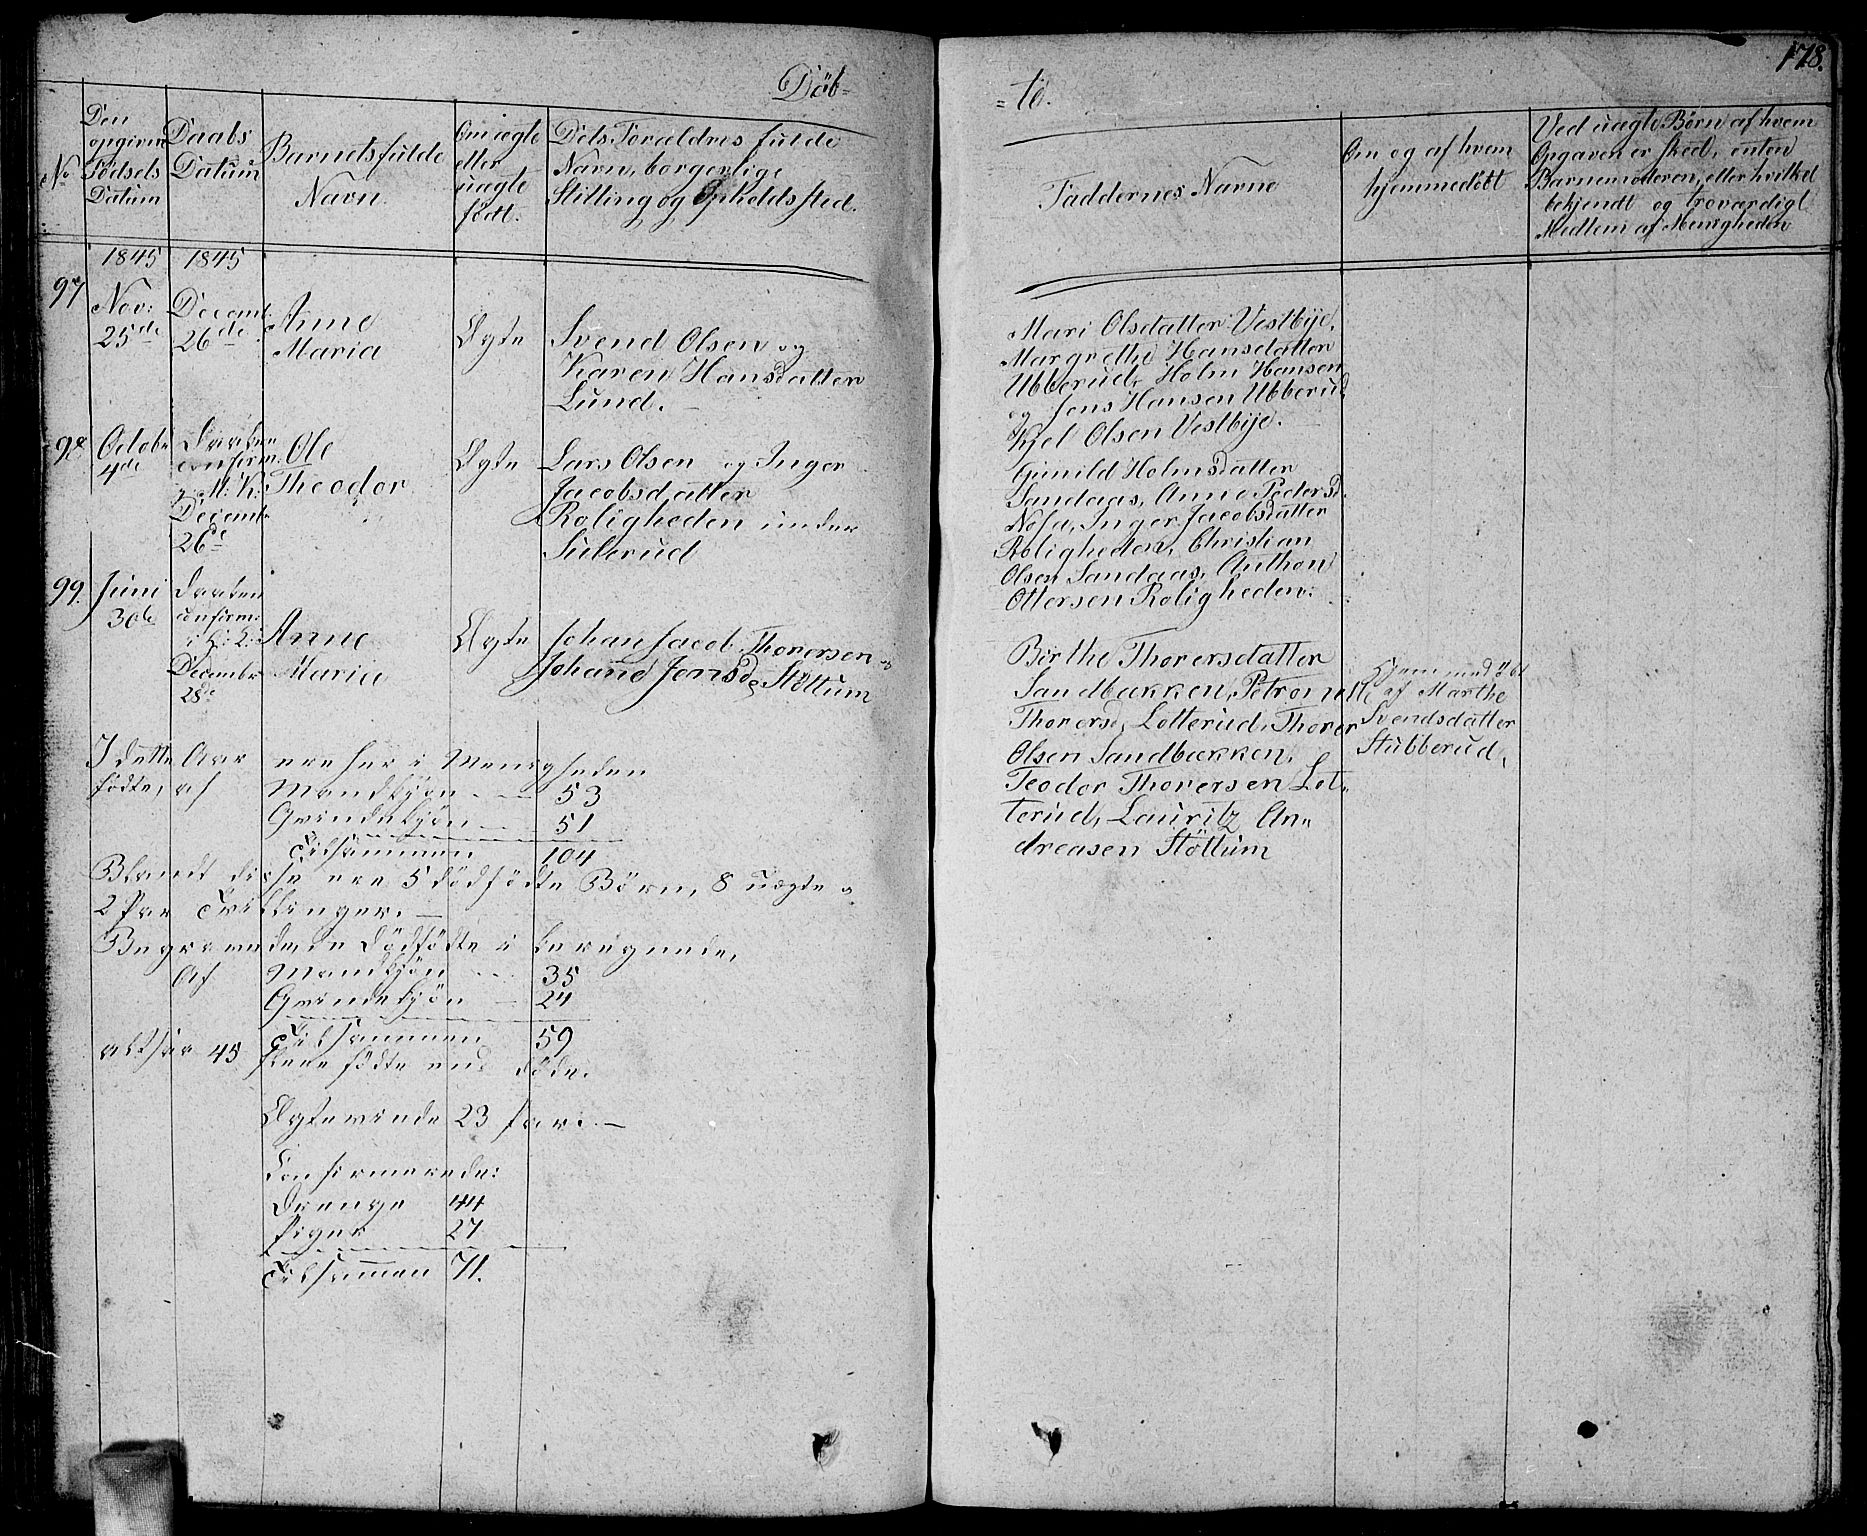 Døb-
=te.
178.
No
Den opgivne Fødsels Datum
Daabs Datum
Barnets fulde Navn.
Om ægte eller uægte født.
Dets Forældres fulde Navn, borgerlige Stilling og Opholdssted.
Faddernes Navne
Om og af hvem hjemmedøbt
Ved uægte Børn af hvem Opgaven er skeed, enten Barnemoderen, eller hvilket bekjendt og troværdigt Medlem af Menigheden
1845
1845
97
Nov:
25de
Decemb:
26de.
Anne
Maria
Ægte
Svend Olsen og
Karen Hansdatter
Lund.
Mari Olsdatter Vestbye,
Margrethe Hansdatter
Ubberud, Holm Hansen
og Jens Hansen Ubberud
Kjel Olsen Vestbye.
98
Octobr
4de
Daaben
confirm.
M: K:
Decembr
26de
Ole
Theodor
Ægte
Lars Olsen og Inger
Jacobsdatter
Roligheden under
Sulerud
Gunild Holmsdatter
Sandaas, Anne Pedersd.
Nosa, Inger Jacobsdatter
Roligheden, Christian
Olsen Sandaas, Anthon
Ottersen Roligheden:
99.
Juni
30te
Daaben
confirm:
i H: K:
Decembr
28de
Anne
Maria
Ægte
Johan Jacob Thorersen og
Johane Jensd. Støttum
Birthe Thorersdatter
Sandbækken, Petronelle
Thorersd. Lotterud, Thorer
Olsen Sandbækken,
Teodor Thorersen Lot-
terud, Lauritz An-
dreasen Støttum
Hjemmedøbt
af Marthe
Svendsdatter
Stubberud,
I dette Aar ere her i Menigheden
fødte, af Mandkjøn — 53
Qvindekjøn — 51
Tilsammen 104
Blandt disse ere 5 dødfødte Børn, 8 uægte og
2 Par Tvillinger. —
Begravede de dødfødte i beregnede,
Af Mandkjøn — 35
Qvindekjøn — 24
Tilsammen 59
altsaa 45 flere fødte end døde.
Ægteviede 23 Par. —
Confirmerede:
Drenge 44
Piger 27
Tilsammen 71.